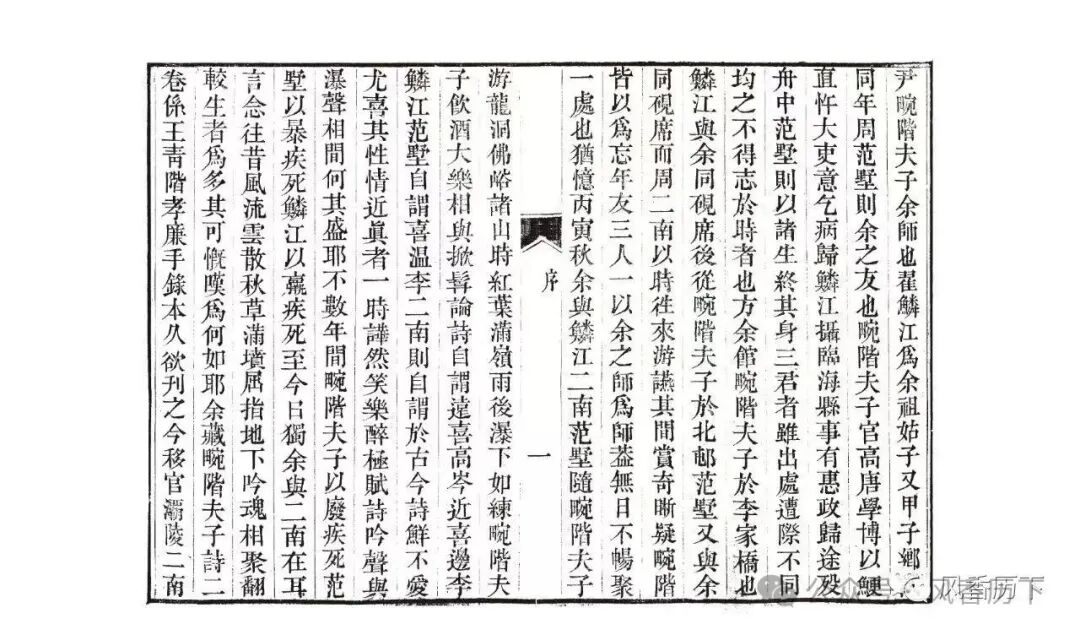 尹畹階夫子余師也翟鱗江爲余祖姑子又甲子鄉
同年周范墅則余之友也畹階夫子官高唐學博以鯁
直忤大吏意乞病歸鱗江攝臨海縣事有惠政歸途歿
舟中范墅則以諸生終其身三君者雖出處遭際不同
均之不得志於時者也方余館畹階夫子於李家橋也
鱗江與余同硯席後從畹階夫子於北邨范墅又與余
同硯席而周二南以時徃來游讌其間賞奇晰疑畹階
皆以爲忘年友三人一以余之師爲師葢無日不暢聚
一處也猶憶丙寅秋余與鱗江二南范墅隨畹階夫子
序
一
游龍洞佛峪諸山時紅葉滿嶺雨後瀑下如練畹階夫
子飲酒大樂相與掀髯論詩自謂遠喜高岑近喜邊李
鱗江范墅自謂喜温李二南則自謂於古今詩鮮不愛
尤喜其性情近眞者一時譁然笑樂醉極賦詩吟聲與
瀑聲相間何其盛耶不數年間畹階夫子以廢疾死范
墅以暴疾死鱗江以羸疾死至今日獨余與二南在耳
言念往昔風流雲散秋草滿墳屈指地下吟魂相聚翻
較生者爲多其可慨嘆爲何如耶余藏畹階夫子詩二
卷係王靑階孝廉手錄本久欲刊之今移官灞陵二南
公众号·风香历下